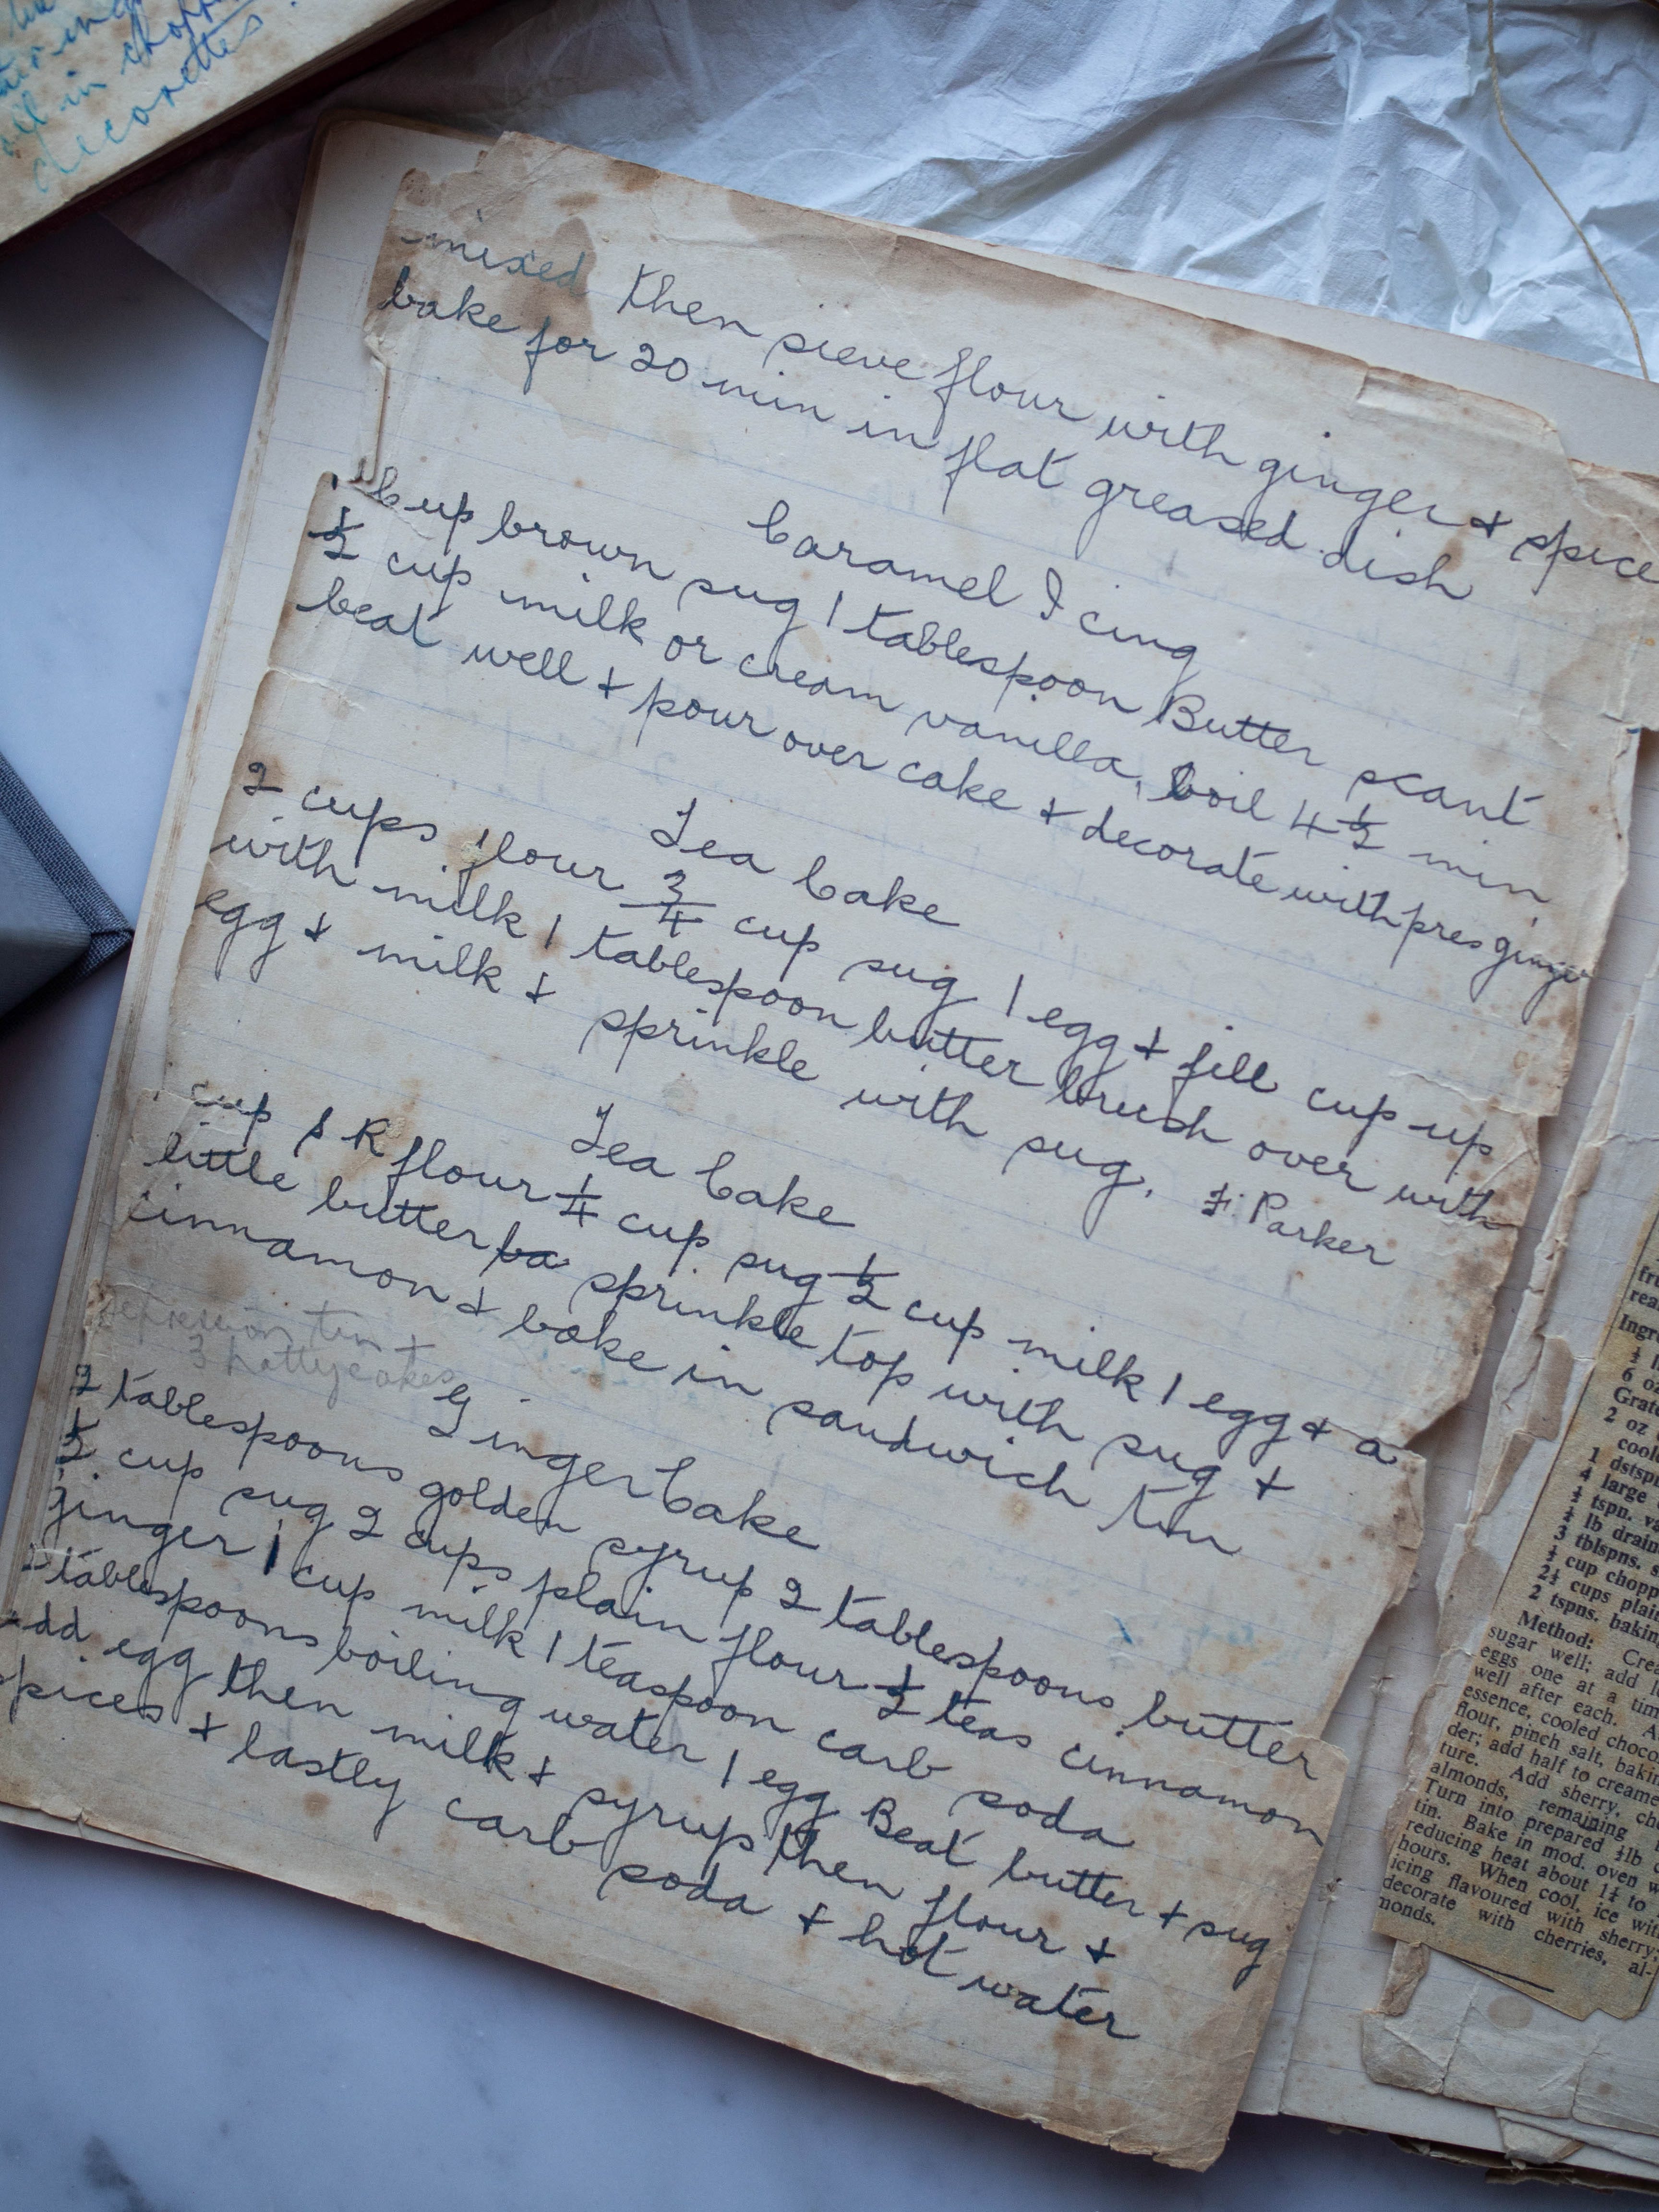 decorettes
mixed then sieve flour with ginger + spice
bake for 20 min in flat greased dish
Caramel Icing
1 Cup brown sug 1 tablespoon Butter scant
1/2 cup milk or cream vanilla, boil 4 1/2 min,
beat well + pour over cake + decorate with pres ginger
Tea Cake
2 cups flour 3/4 cup sug 1 egg + fill cup up
with milk 1 tablespoon butter brush over with
egg + milk + sprinkle with sug. F. Parker
Tea Cake
cup S R flour 1/4 cup sug 1/2 cup milk 1 egg + a
little butter ba sprinkle top with sug +
cinnamon + bake in sandwich tin
tin +
3 pattycakes
Ginger Cake
2 tablespoons golden syrup 2 tablespoons butter
1/2 cup sug 2 cups plain flour 1/2 teas cinnamon
ginger 1 cup milk 1 teaspoon carb soda
tablespoons boiling water 1 egg Beat butter + sug
add egg then milk + syrup then flour +
spices + lastly carb soda + hot water
6 oz
2 oz
4 large
2 tspns. baking
Method:
sugar well; add
eggs one at a time
well after each.
essence, cooled
flour, pinch salt,
der; add half to
ture. Add sherry,
almonds, remaining
Turn into prepared
tin. Bake in mod. oven
reducing heat about 1¼ to
hours. When cool, ice
icing flavoured with sherry;
decorate with cherries, al-
monds.